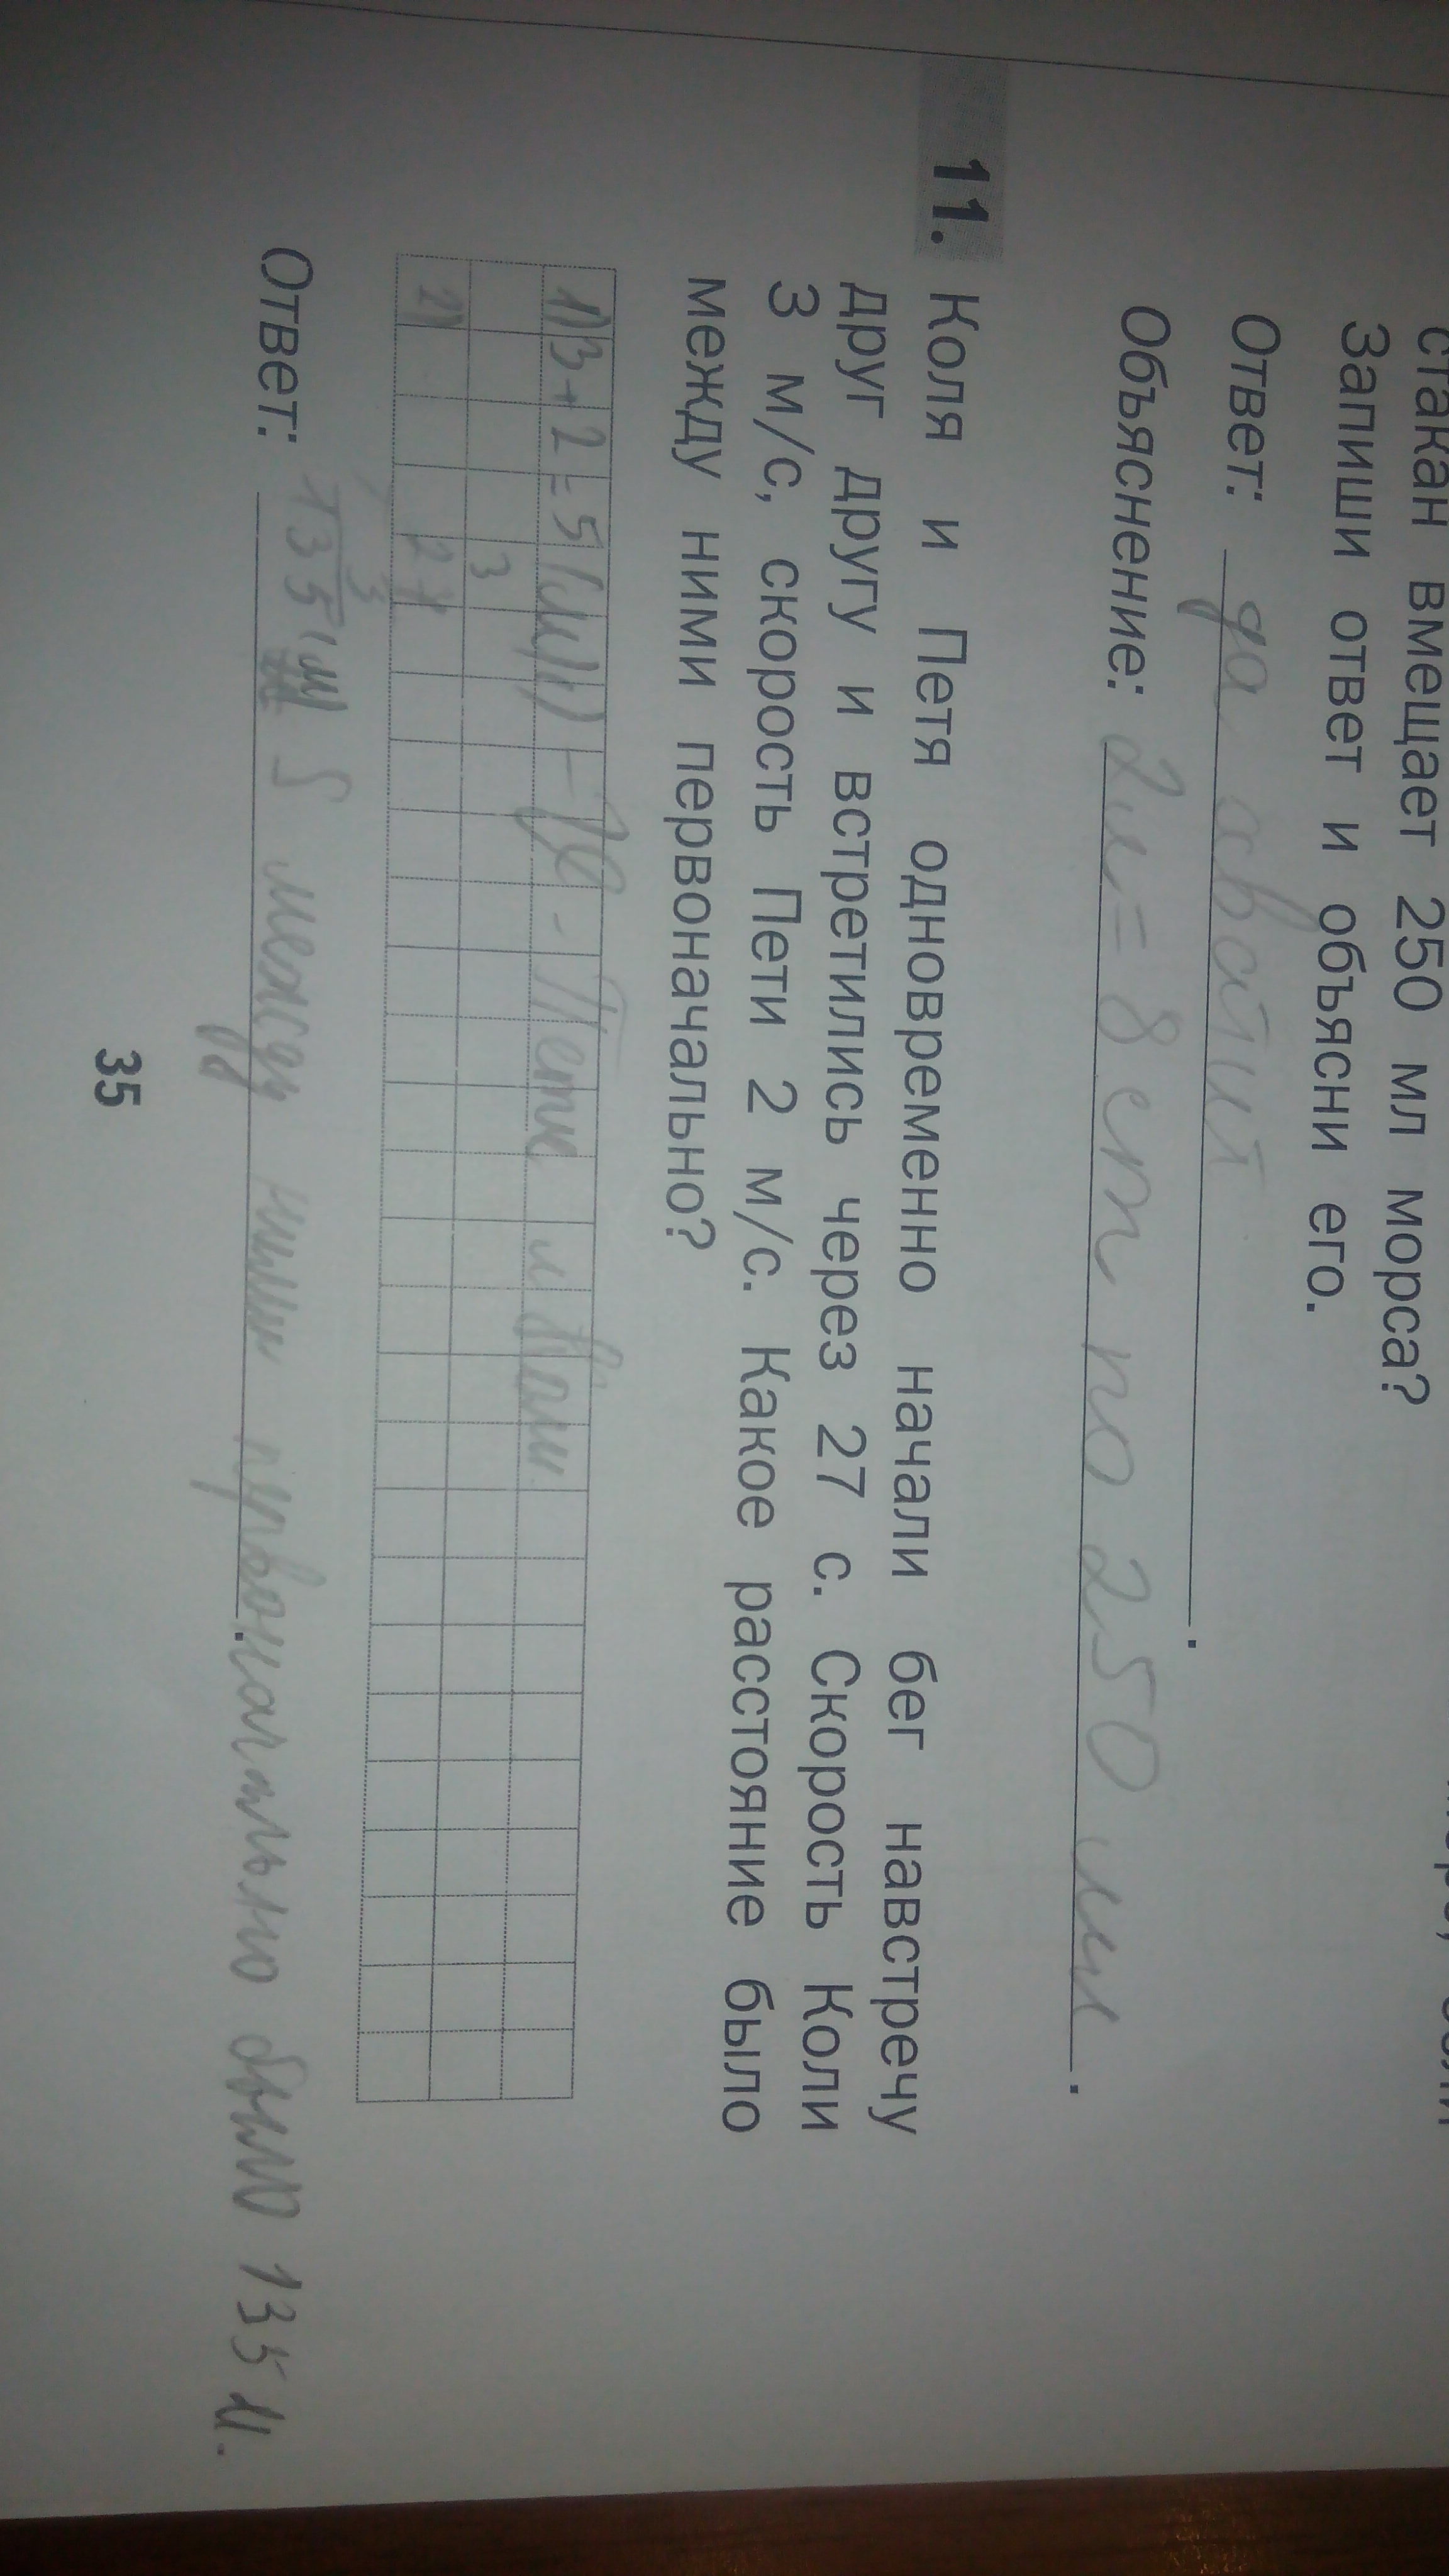 стакан вмещает 250 мл морса?
Запиши ответ и объясни его.
Ответ: да
Объяснение: 2л = 8 ст по 250 мл.
11. Коля и Петя одновременно начали бег навстречу
друг другу и встретились через 27 с. Скорость Коли
3 м/с, скорость Пети 2 м/с. Какое расстояние было
между ними первоначально?
1) 3 + 2 = 5 (м)
3
2) 27
3
135 (м)
Ответ: S между ними первоначально было 135 м.
35